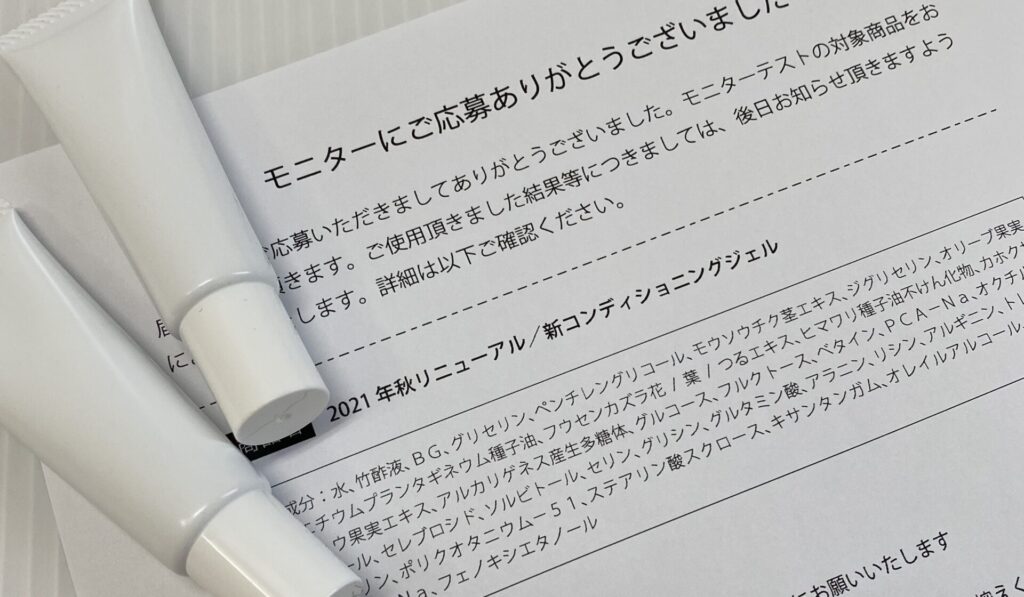 モニターにご応募ありがとうございました
応募いただきましてありがとうございました。モニターテストの対象商品をお
頂きます。ご使用頂きました結果等につきましては、後日お知らせ頂きますよう
します。詳細は以下ご確認ください。
2021年秋リニューアル/新コンディショニングジェル
成分:水、竹酢液、BG、グリセリン、ペンチレングリコール、モウソウチク茎エキス、ジグリセリン、オリーブ果実
エチウムプランタギネウム種子油、フウセンカズラ花/葉/つるエキス、ヒマワリ種子油不けん化物、カホク
ウ果実エキス、アルカリゲネス産生多糖体、グルコース、フルクトース、ベタイン、PCA-Na、オクチル
ール、セレブロシド、ソルビトール、セリン、グリシン、グルタミン酸、アラニン、リシン、アルギニン、トレ
ン、ポリクオタニウム-51、ステアリン酸スクロース、キサンタンガム、オレイルアルコール
Na、フェノキシエタノール
にお願いいたします